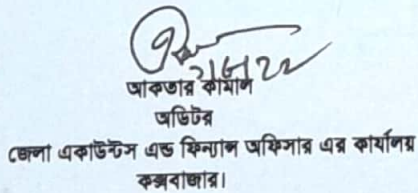 আকতার কামাল
অডিটর
জেলা একাউন্টস এন্ড ফিন্যান্স অফিসার এর কার্যালয়
কক্সবাজার।